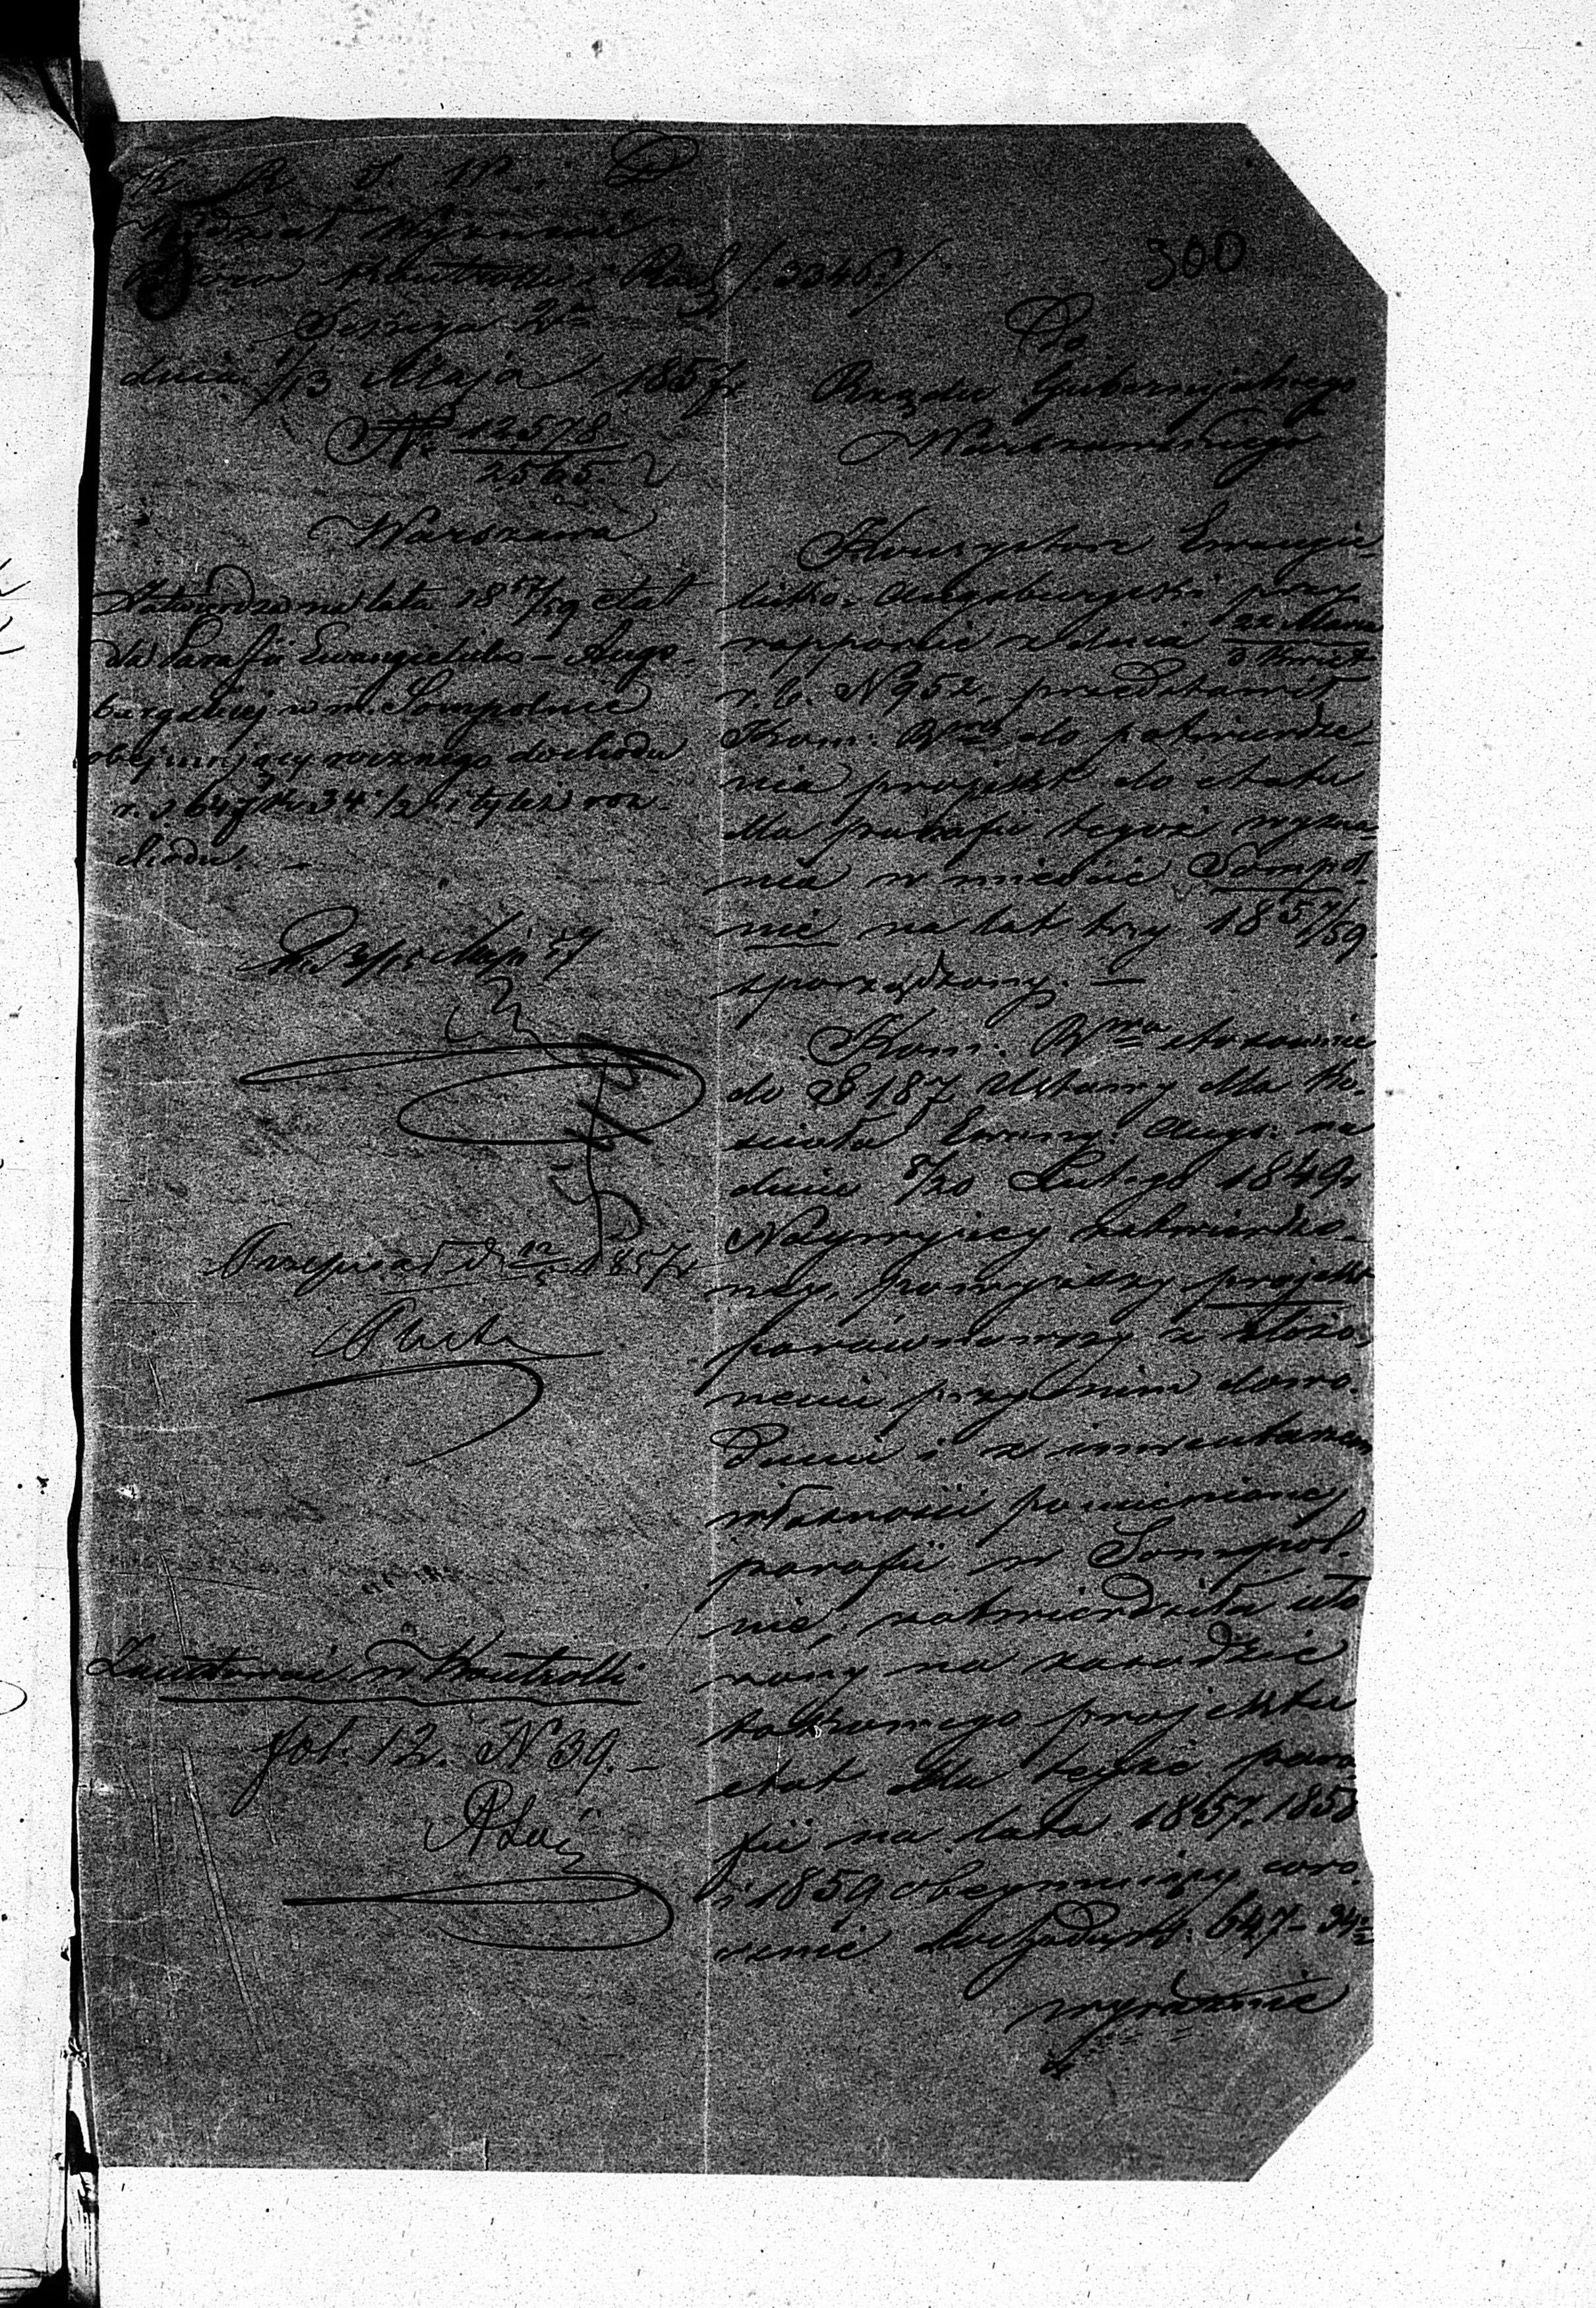 K R S. W. i D
Wydział Wyznań
Biuro Kontrolli i Rach /:3345:/
Sekcya 2a
dnia 1/13 Maja 1857r
No 12578/2565.
Warszawa
Zatwierdza na lata 1857/59 etat
dla Parafii Ewangielicko-Augs-
burgskiej w m. Sompolnie
obejmujący rocznego dochodu
r. s. 647 k. 34 1/2 i tyleż roz-
chodu. -
Maja 57
Przepisał d 12/5 1857r
Zanotowai w Kontrolli
fol: 12. N 39. -
300
Do
Rządu Gubernijalnego
Warszawskiego
Konsystorz Ewangie-
licko-Augsburgski przy
rapporcie z dnia 22 Marca/3 Kwiet
r. b. N 952, przedstawił
Kom: Rwej do potwierdze-
nia projekt do etatu
dla parafii tegoż wyzna-
nia w mieście Sompol-
nie na lat trzy 1857/59
sporządzony. -
Kom: Rwa stosownie
do § 187 Ustawy dla Ko-
ścioła Ewang: Augs: na
dniu 8/20 Lutego 1849r
Najwyżej zatwierdzo-
nej, powyższy projekt
porównawszy z złożo-
nemi przy nim dowo-
dami i z inwentarzem
własności pomienionej
parafii w Sompol-
nie, zatwierdziła uło
żony na zasadzie
takowego projektu
etat dla tejże para
fii na lata 1857. 1858
i 1859 obejmujący coro-
cznie dochodu rs: 647 - 34 1/2
wyraźnie